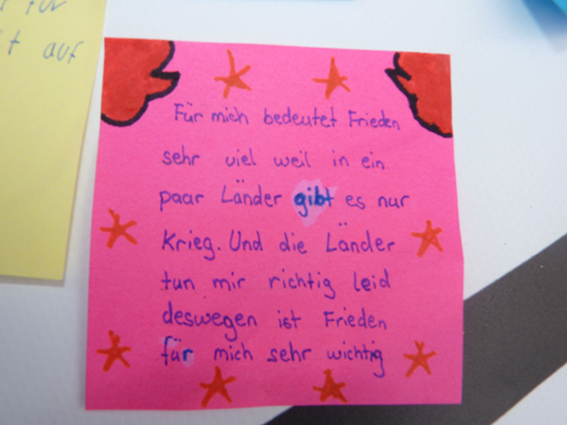 Für mich bedeutet Frieden
sehr viel weil in ein
paar Länder gibt es nur
Krieg. Und die Länder
tun mir richtig leid
deswegen ist Frieden
für mich sehr wichtig
auf